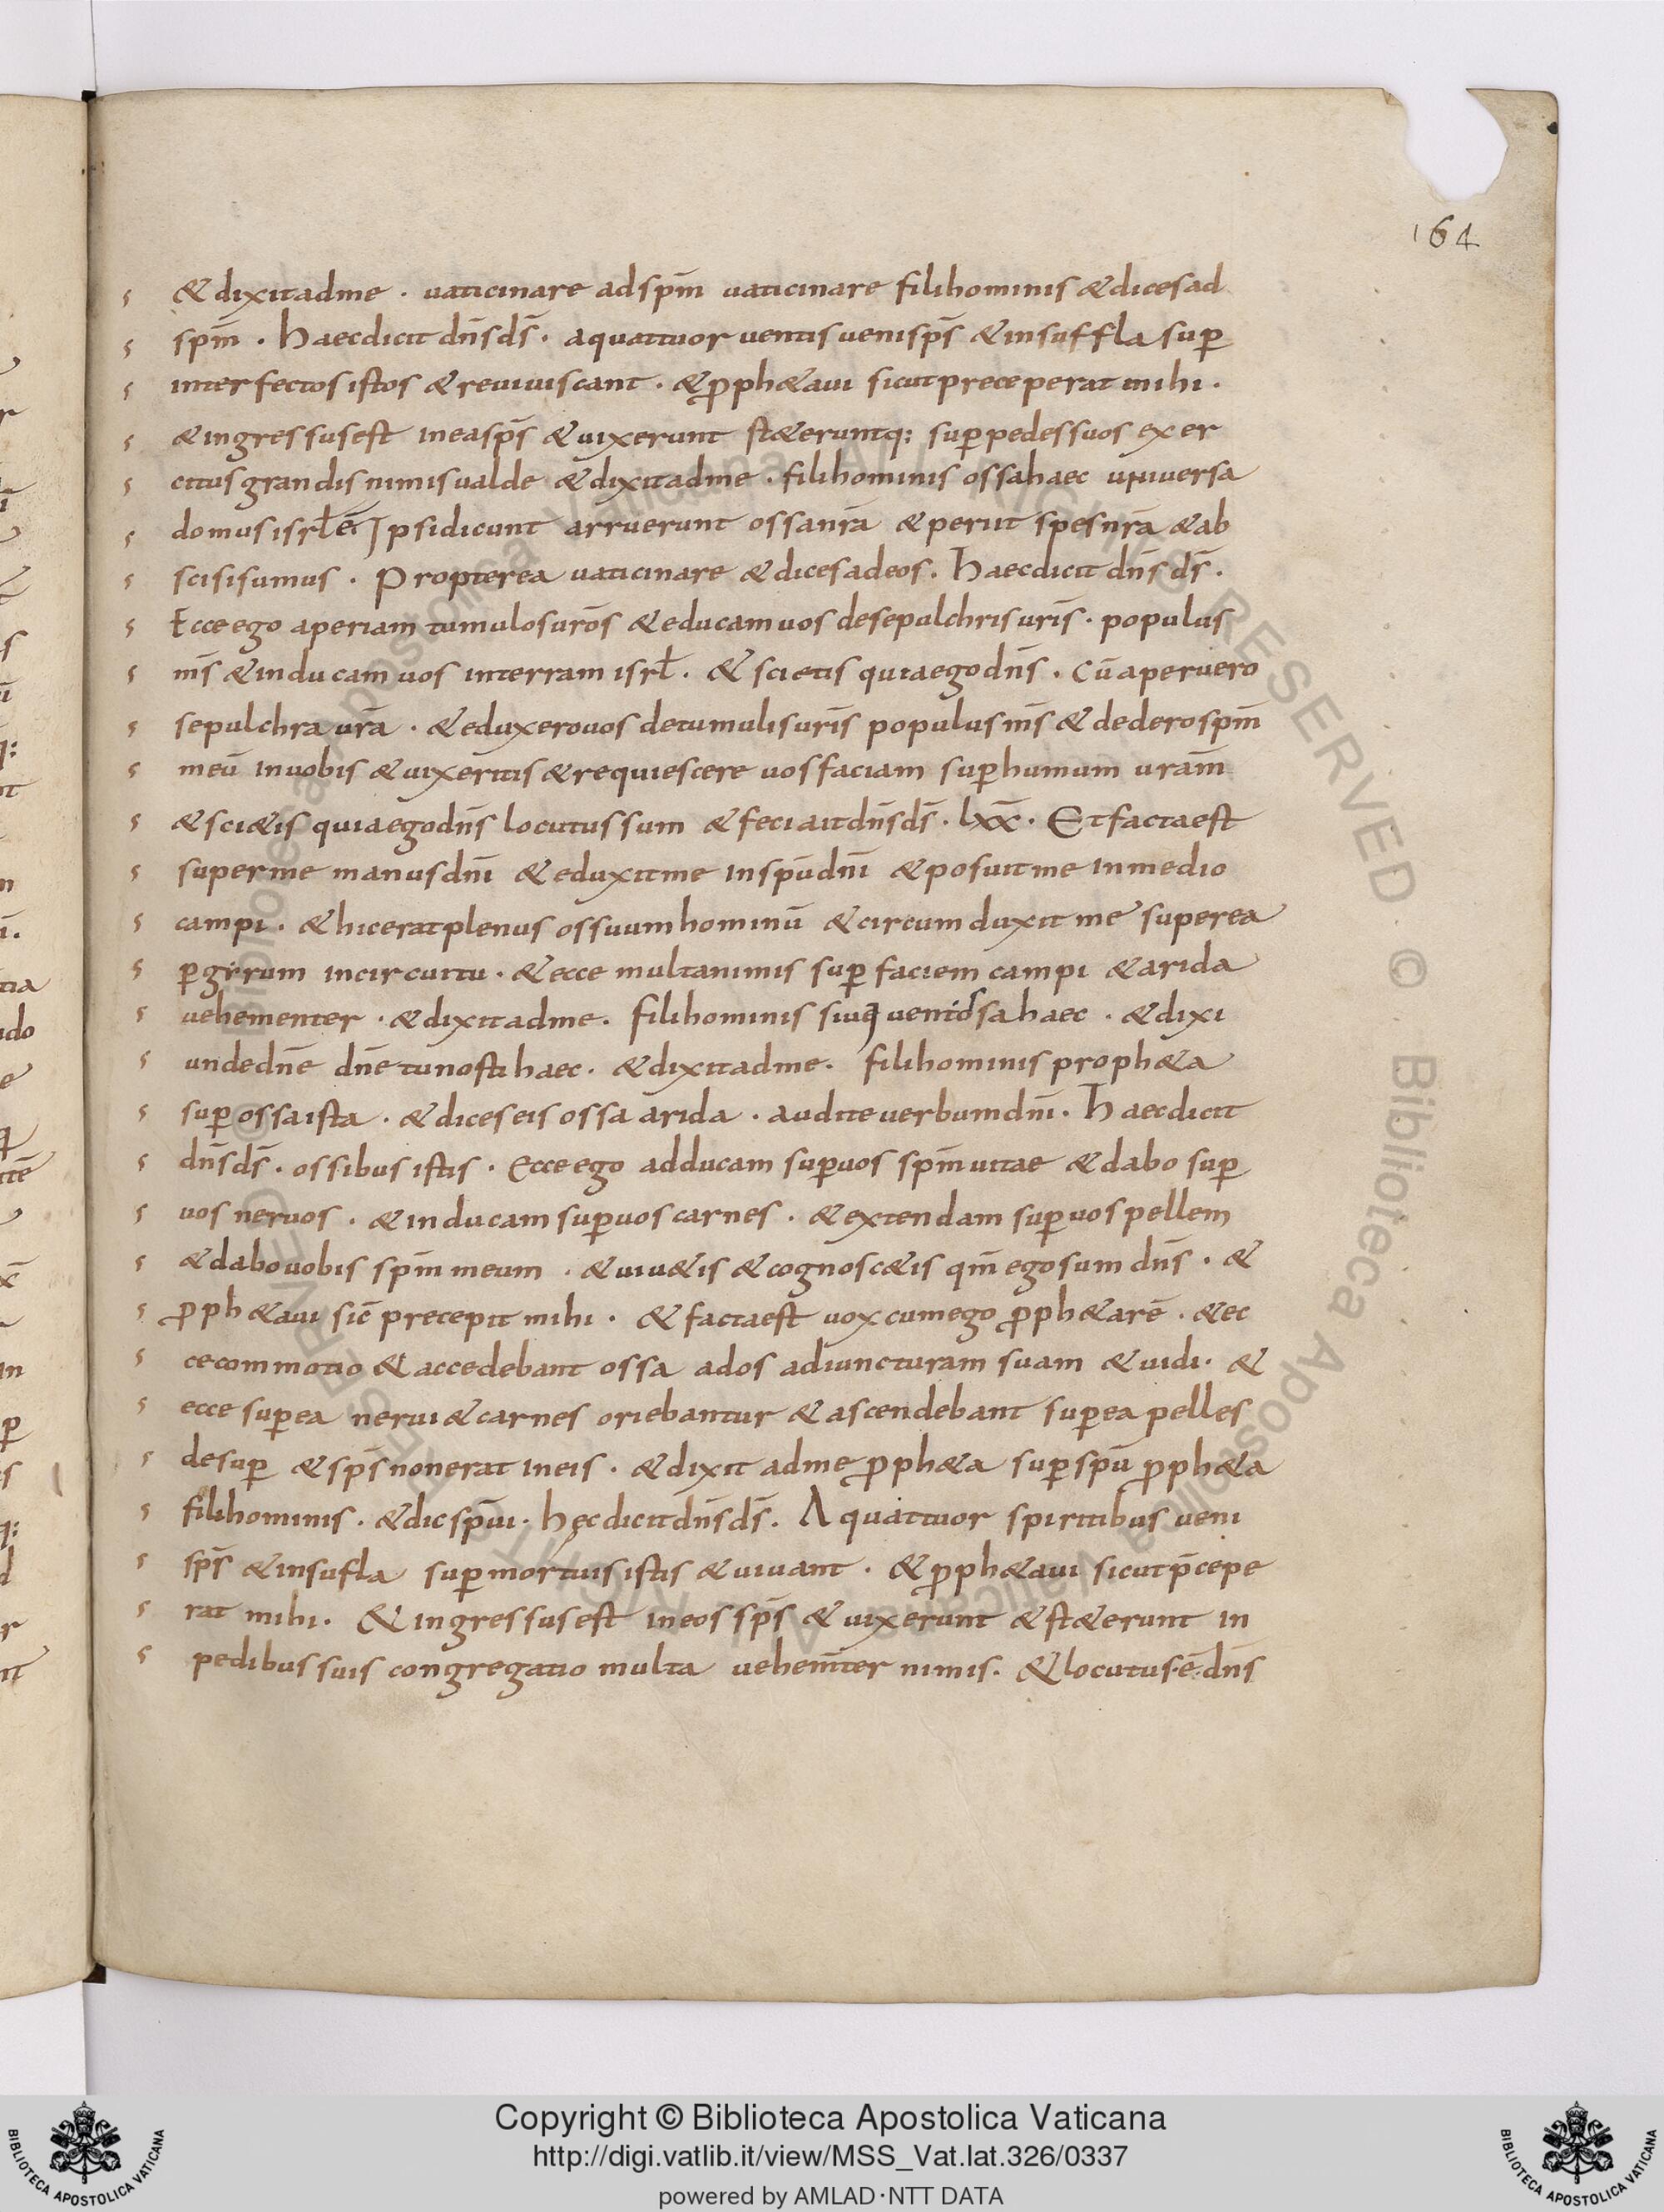 164
& dixit ad me · uaticinare ad sp̄m uaticinare fili hominis & dices ad
sp̄m · Haec dicit dn̄s ds̄ · a quattuor uentis ueni sp̄s & insuffla sup̱
interfectos istos & reuiuiscant · & ꝓph&aui sicut preceperat mihi ·
& ingressus est in ea sp̄s & uixerunt st&eruntq: sup̱ pedes suos exer
citus grandis nimis ualde & dixit ad me · fili hominis ossa haec uniuersa
domus isrł ē· Ipsi dicunt arruerunt ossa nr̄a & periit spes nr̄a & ab
scisi sumus · Propterea uaticinare & dices ad eos · Haec dicit dn̄s ds̄ ·
Ecce ego aperiam tumulos ur̄os & educam uos de sepulchris ur̄is · populus
m̄s & inducam uos in terram isrł · & scietis quia ego dn̄s · Cū aperuero
sepulchra ur̄a · & eduxero uos de tumulis ur̄is populus m̄s & dedero sp̄m
meū in uobis & uixeritis & requiescere uos faciam sup̱ humum ur̄am
& sci&is quia ego dn̄s locutus sum & feci ait dn̄s ds̄ · lxx̄ · Et facta est
super me manus dn̄i & eduxit me in sp̄u dn̄i & posuit me in medio
campi · & hic erat plenus ossuum hominū & circumduxit me super ea
p̱ girum in circuitu · & ecce multa nimis sup̱ faciem campi & arida
uehementer · & dixit ad me · fili hominis siuę uent ossa haec · & dixi
unde dn̄e dn̄e tu nosti haec · & dixit ad me · fili hominis proph&a
sup̱ ossa ista · & dices eis ossa arida · audite uerbum dn̄i · Haec dicit
dn̄s ds̄ · ossibus istis · Ecce ego adducam sup̱ uos sp̄m uitae & dabo sup̱
uos neruos · & inducam sup̱ uos carnes · & extendam sup̱ uos pellem
& dabo uobis sp̄m meum · & uiu&is & cognosc&is qm̄ ego sum dn̄s · &
ꝓph&aui sic̄ precepit mihi · & facta est uox cum ego ꝓph&arē · & ec
ce commotio & accedebant ossa ad os ad iuncturam suam & uidi · &
ecce sup̱ ea nerui & carnes oriebantur & ascendebant sup̱ ea pelles
desup̱ & sp̄s non erat in eis · & dixit ad me ꝓph&a sup̱ sp̄u ꝓph&a
fili hominis · & dic sp̄ui · hęc dicit dn̄s ds̄ · A quattuor spiritibus ueni
sp̄s & insufla sup̱ mortuis istis & uiuant · & ꝓph&aui sicut p̄cepe
rat mihi · & ingressus est in eos sp̄s & uixerunt & st&erunt in
pedibus suis congregatio multa uehem̄ter nimis · & locutus ·ē· dn̄s
Copyright © Biblioteca Apostolica Vaticana
http://digi.vatlib.it/view/MSS_Vat.lat.326/0337
powered by AMLAD·NTT DATA